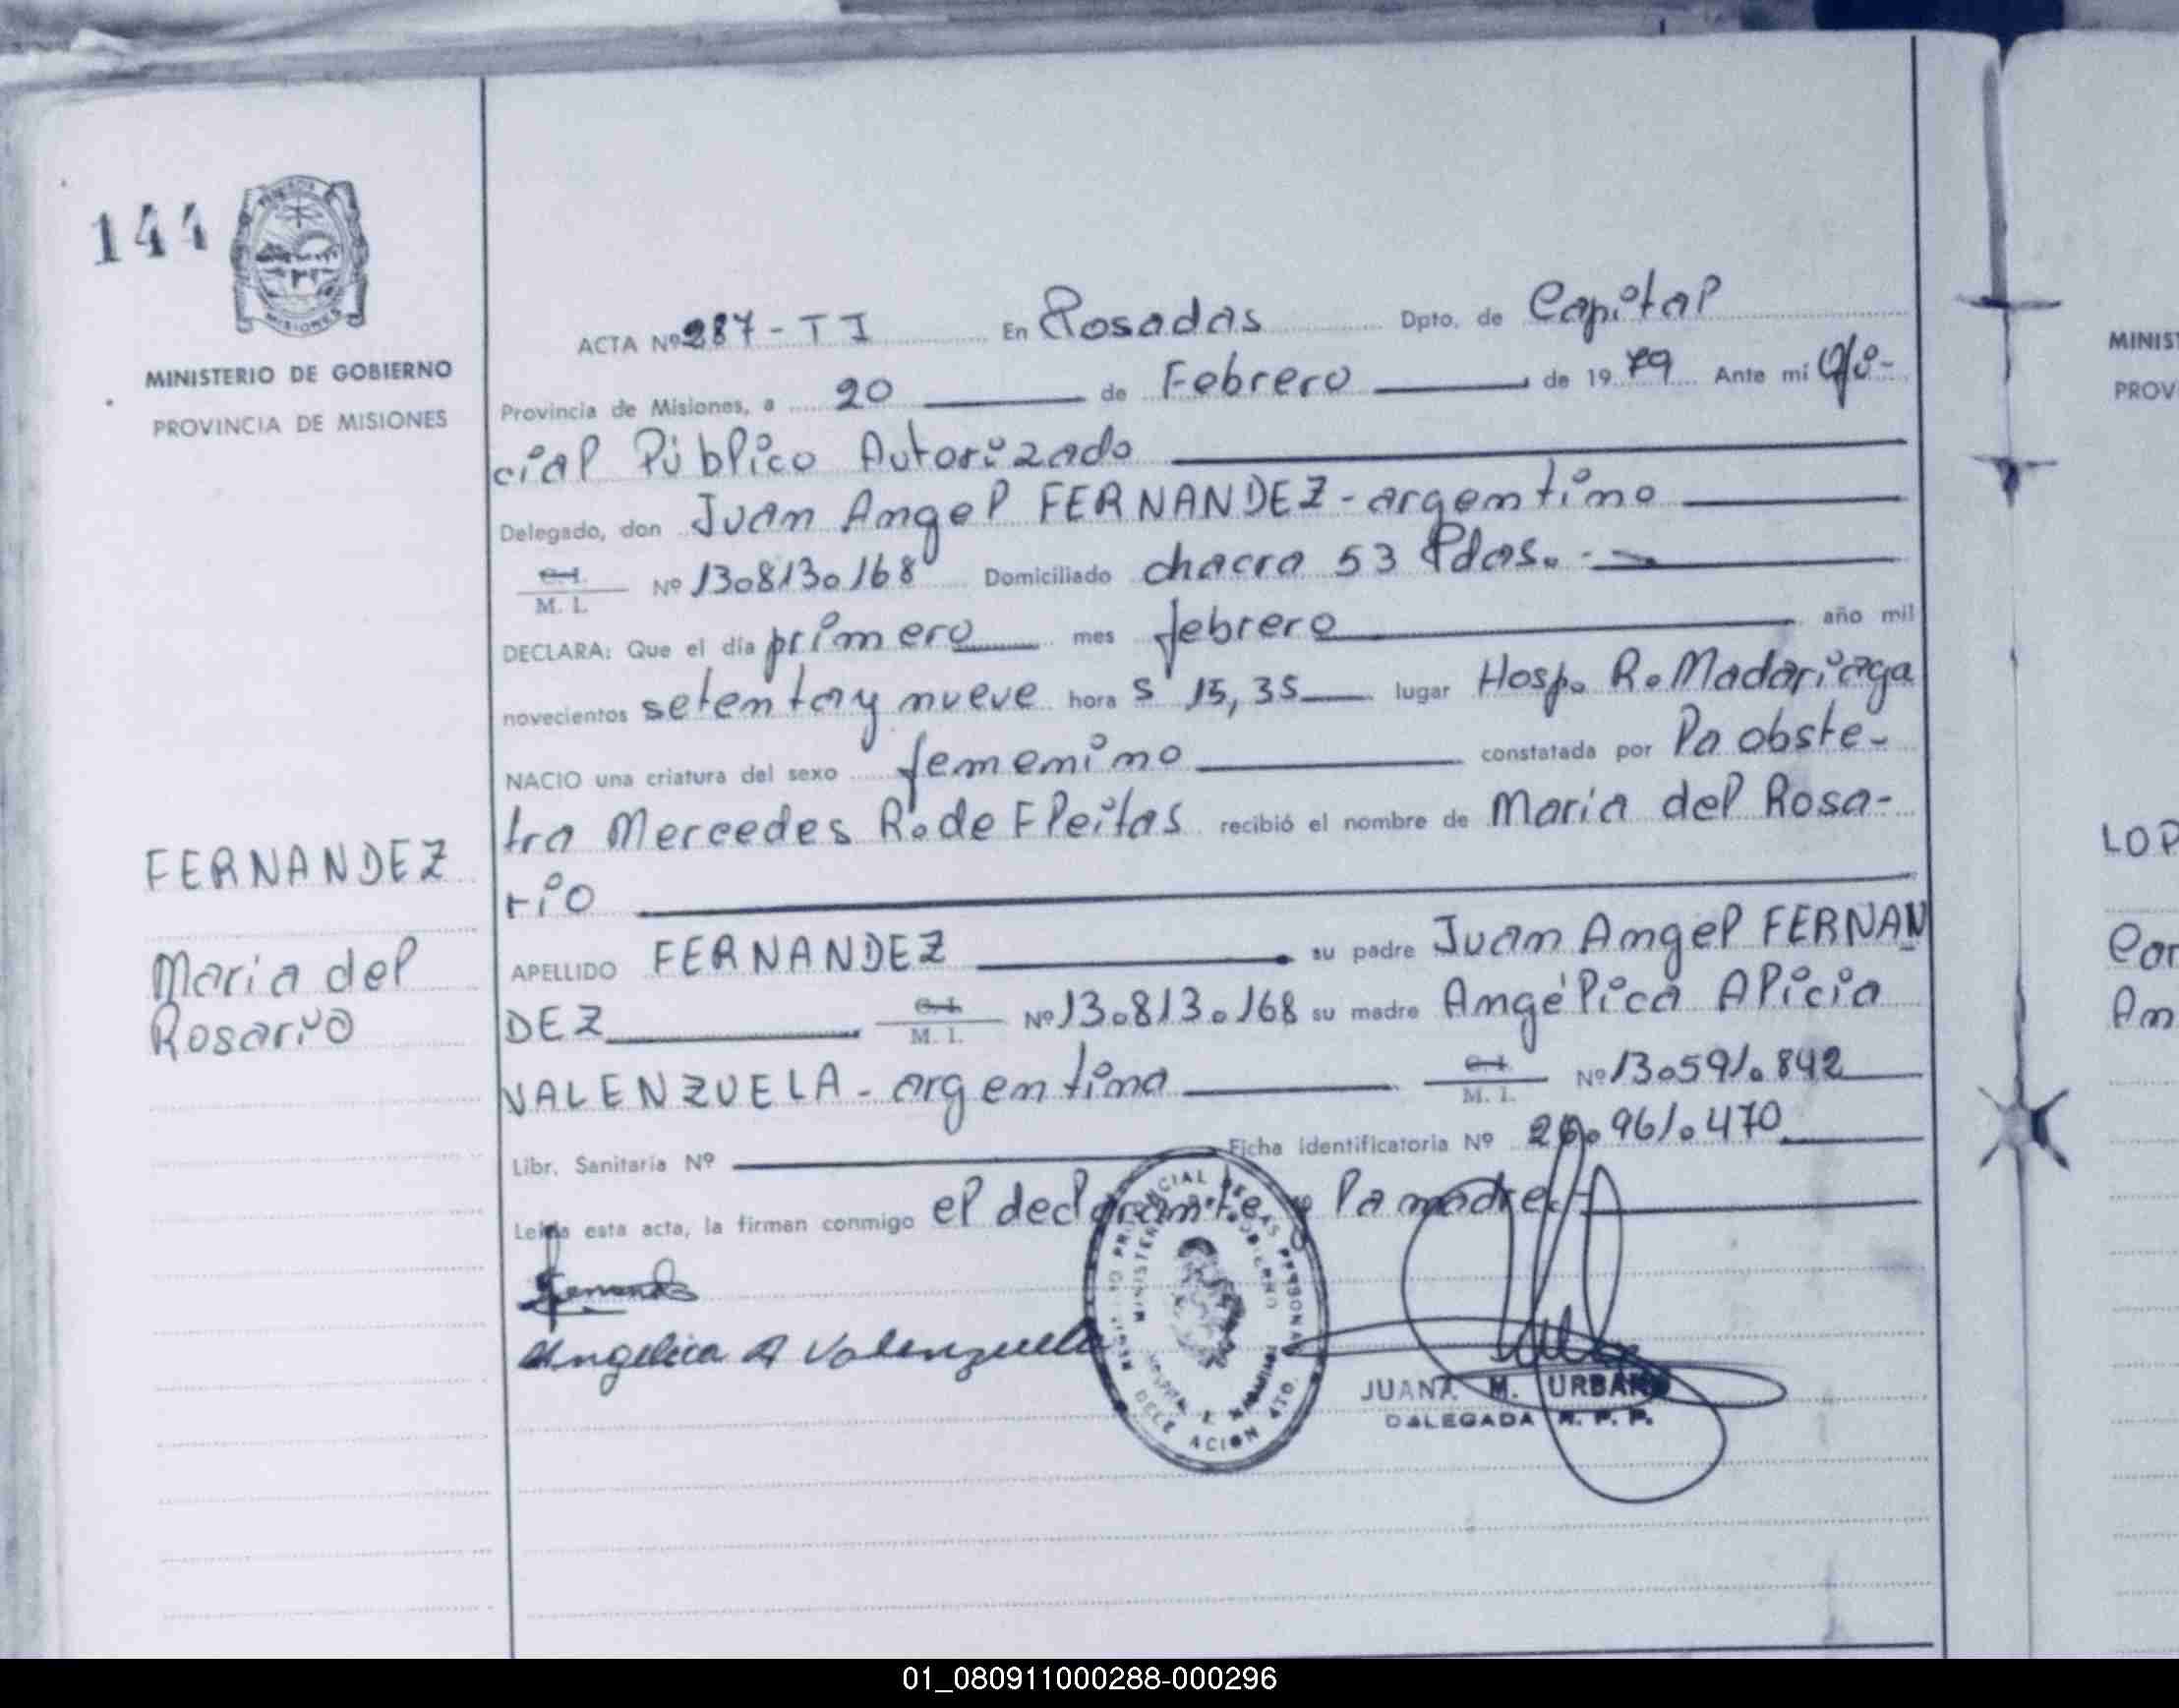 144
MISIONES
MINISTERIO DE GOBIERNO
PROVINCIA DE MISIONES
FERNANDEZ
Maria del
Rosario
ACTA Nº 287-TI En Posadas Dpto. de Capital
Provincia de Misiones, a 20 de Febrero de 1979 Ante mí Ofi-
cial Público Autorizado
Delegado, don Juan Angel FERNANDEZ - argentino
C.I. M. I. Nº 13.813.168 Domiciliado chacra 53 Pdas.-
DECLARA: Que el día primero mes febrero año mil
novecientos setenta y nueve hora s 15,35 lugar Hosp. R. Madariaga
NACIO una criatura del sexo femenino constatada por la obste-
tra Mercedes R. de Fleitas recibió el nombre de Maria del Rosa-
rio
APELLIDO FERNANDEZ su padre Juan Angel FERNAN
DEZ C.I. M. I. Nº 13.813.168 su madre Angélica Alicia
VALENZUELA - argentina C.I. M. I. Nº 13.591.842
Libr. Sanitaria Nº Ficha Identificatoria Nº 26.961.470
Leída esta acta, la firman conmigo el declarante y la madre.-
Angelica A Valenzuela
JUANA M. URBAN
DELEGADA R. P. P.
MINIS
PROV
LOP
Car
An
01_080911000288-000296